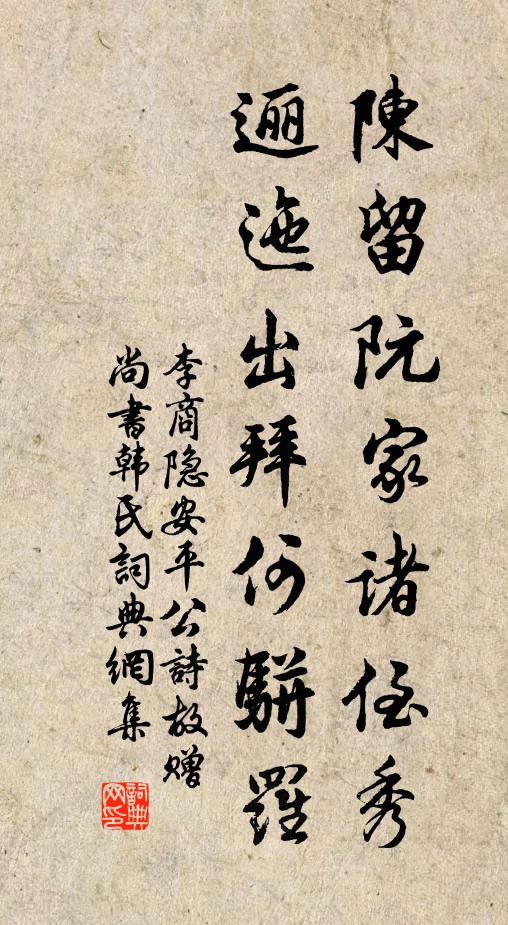 陳留阮家諸侄秀
逦迤出拜何駢羅
李商隐安平公詩故赠
尚書韩氏詞典網集
詞典
网印